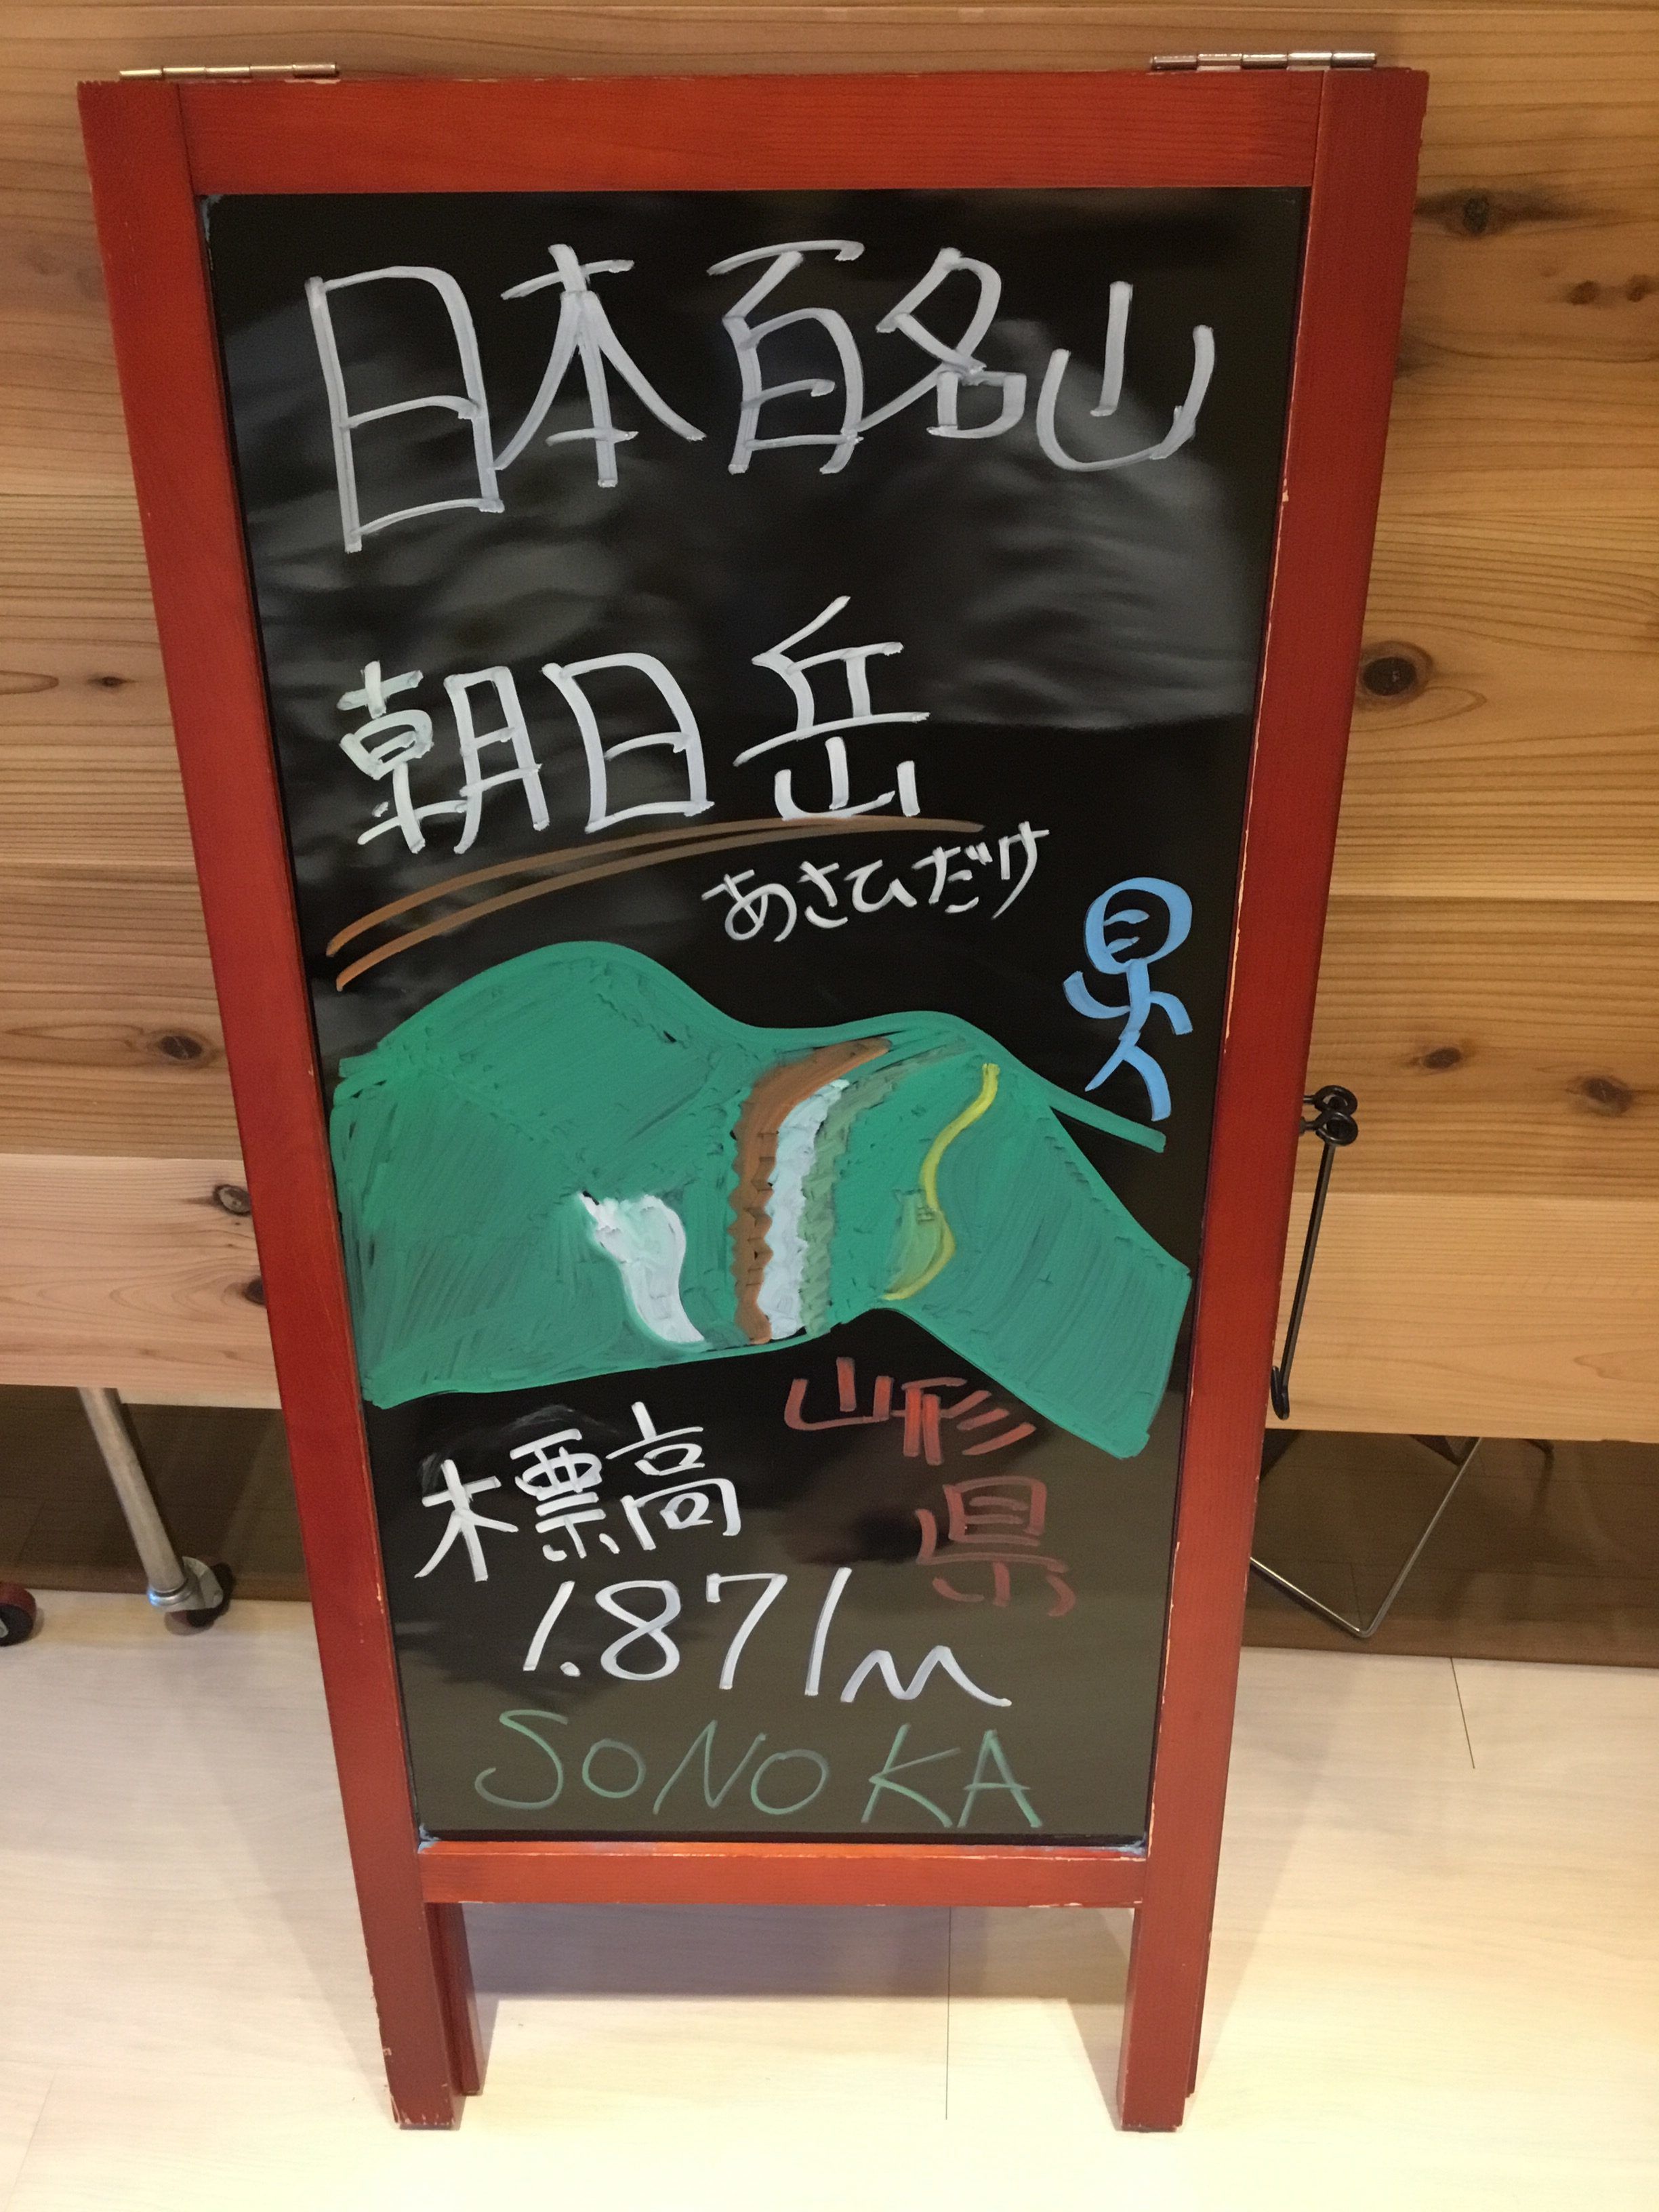 日本百名山
朝日岳
あさひだけ
山形
県
標高
1.871m
SONOKA